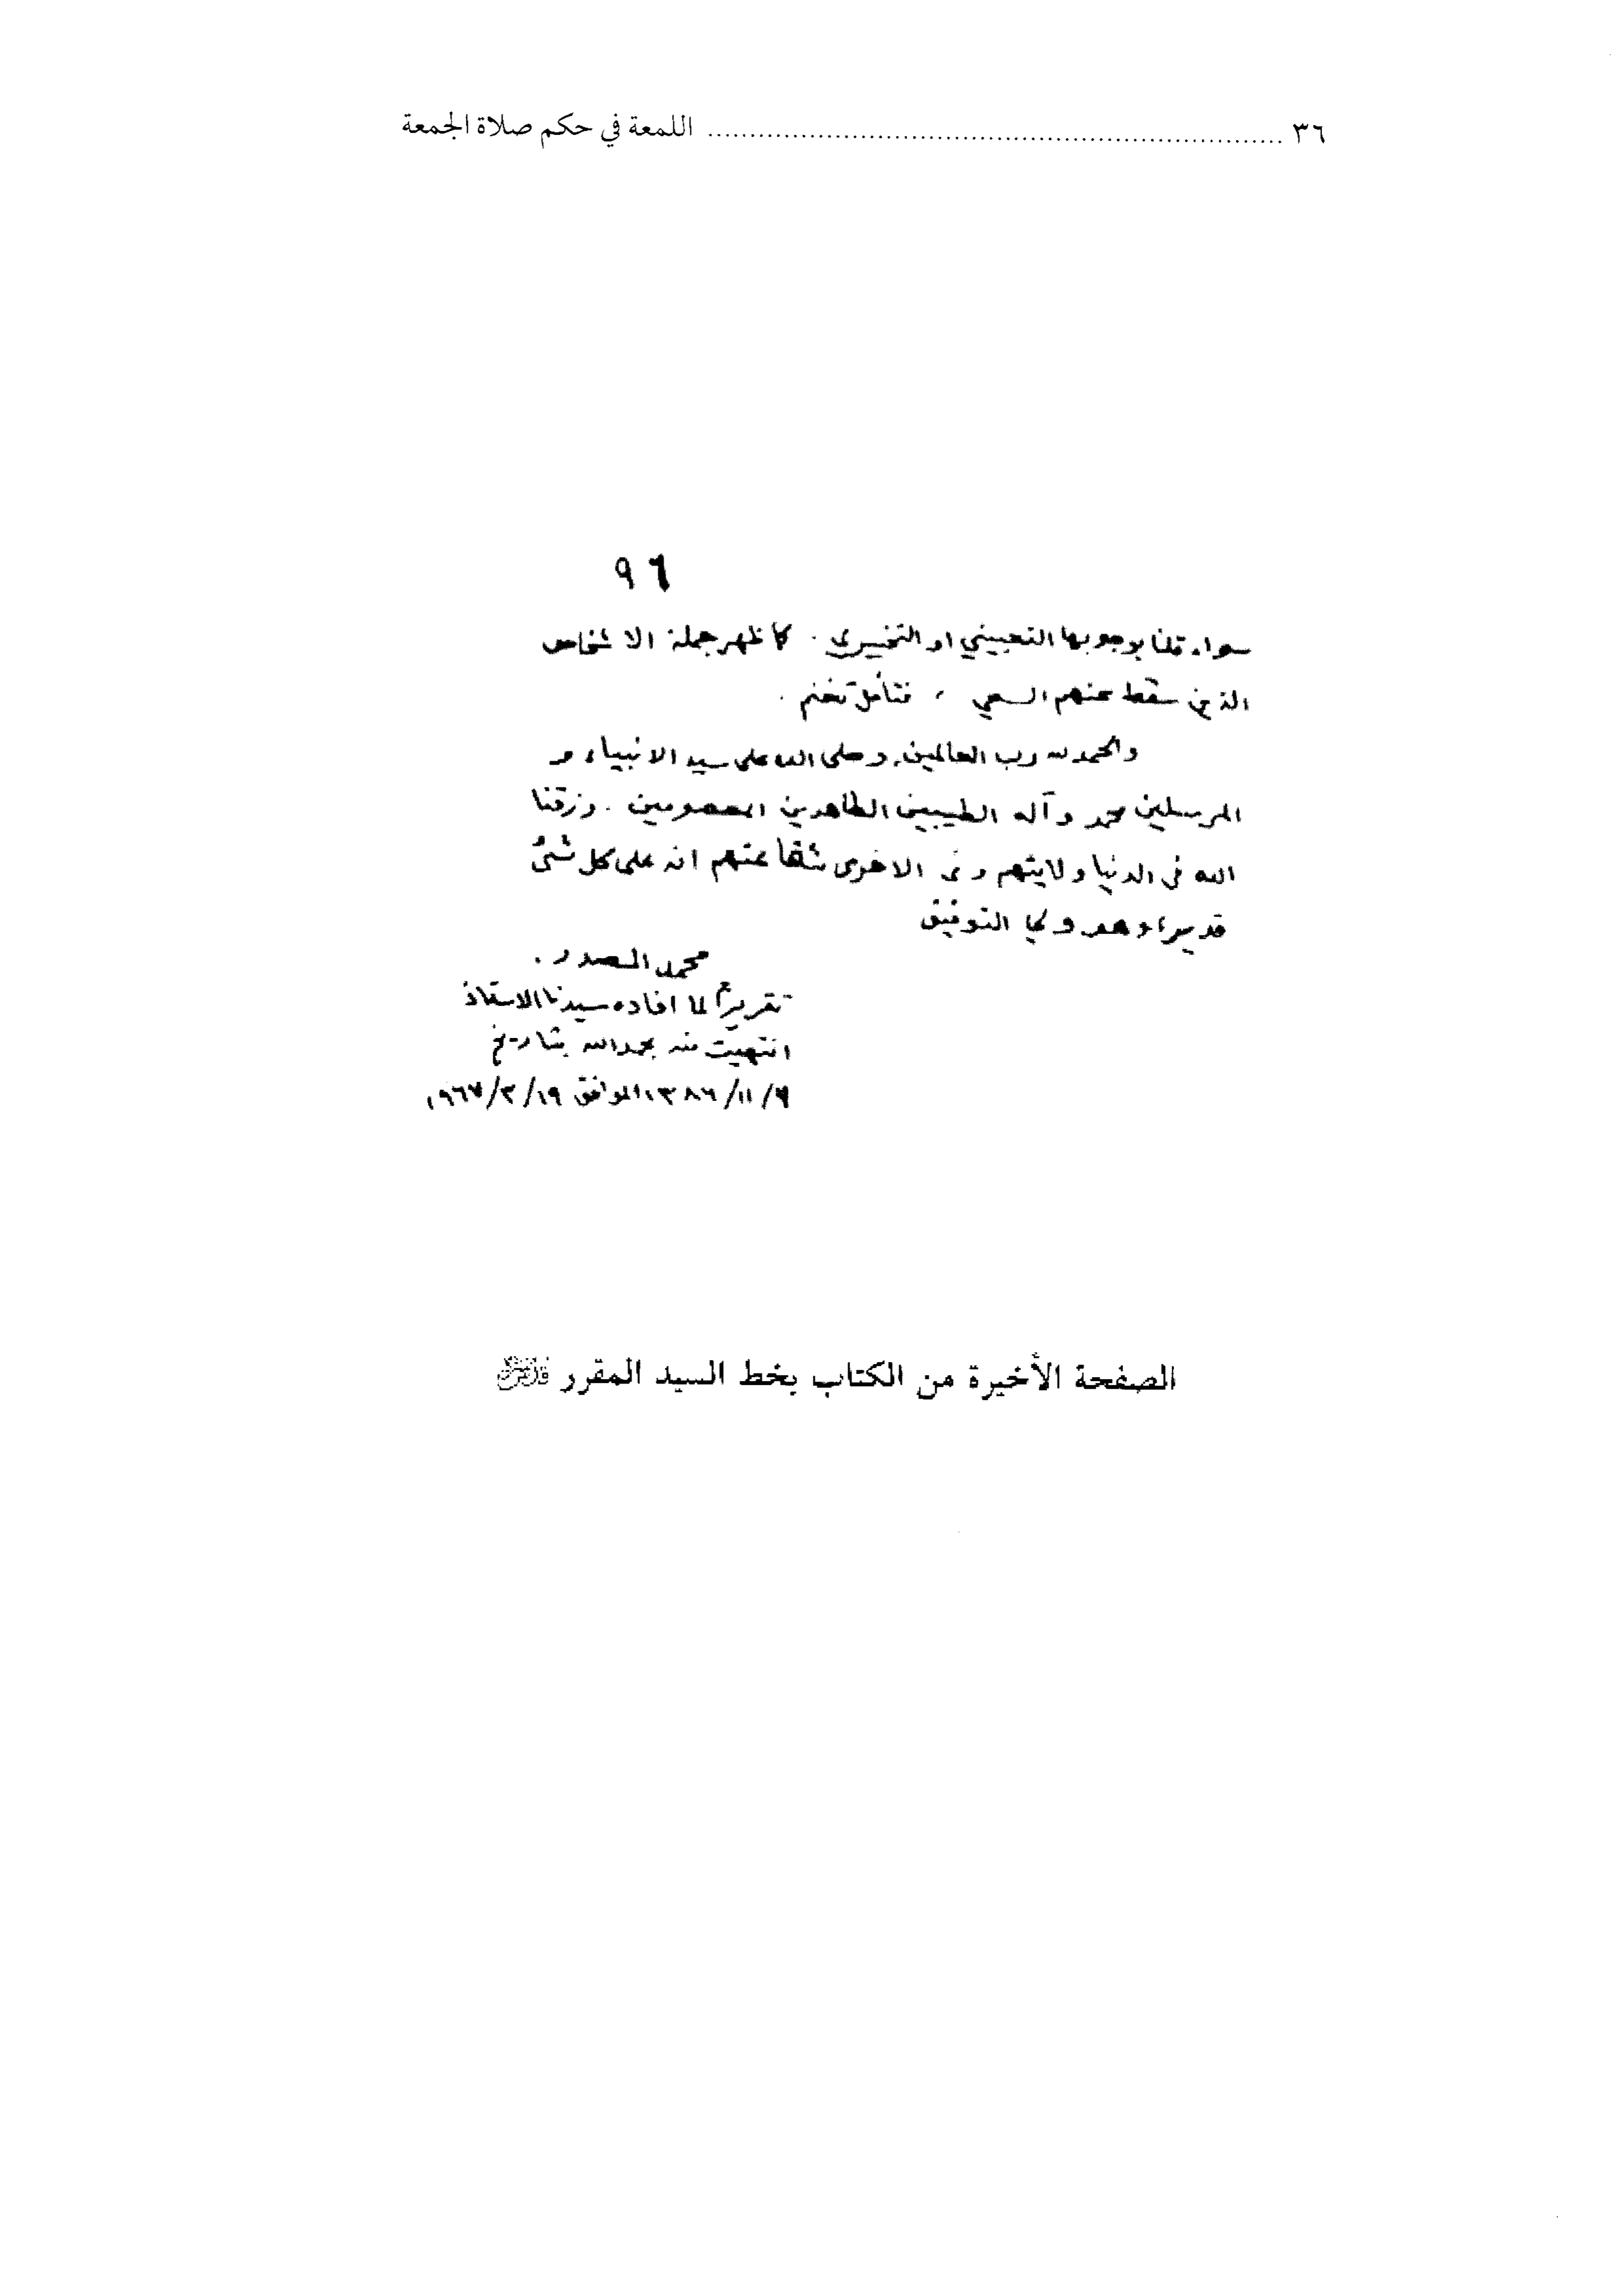 ٣٦ ........................................................................ اللمعة في حكم صلاة الجمعة
٩٦
سواء قلنا بوجوبها التعييني او التخييري . كما ظهر جملة الاشخاص
الذين سقط عنهم السعي ، فتأمل تغنم .
والحمد لله رب العالمين وصلى الله على سيد الانبياء و
المرسلين محمد وآله الطيبين الطاهرين المعصومين . ورزقنا
الله في الدنيا ولايتهم وفي الاخرى شفاعتهم انه على كل شئ
قدير، وهو ولي التوفيق
محمد الصدر .
تقريراً لما افاده سيدنا الاستاذ
انتهيت منه بحمد الله بتاريخ
/١١/١٣٨٦ الموافق ١٩/٢/١٩٦٧
الصفحة الأخيرة من الكتاب بخط السيد المقرر